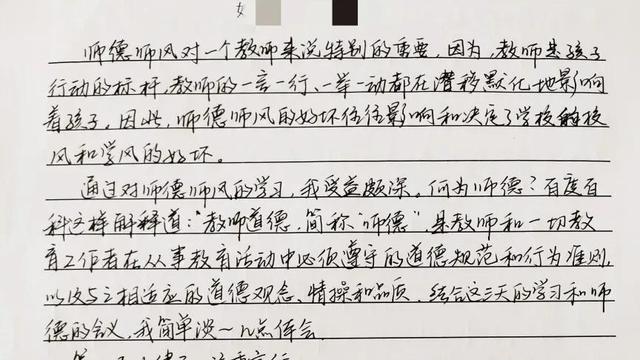 女
师德师风对一个教师来说特别的重要，因为，教师是孩子
行动的标杆，教师的一言一行、一举一动都在潜移默化地影响
着孩子。因此，师德师风的好坏往往影响和决定了学校校
风和学风的好坏。
通过对师德师风的学习，我受益颇深。何为师德？百度百
科这样解释道：“教师道德，简称“师德”，是教师和一切教
育工作者在从事教育活动中必须遵守的道德规范和行为准则，
以及与之相适应的道德观念、情操和品质。结合这三天的学习和师
德的会议，我简单谈一几点体会。